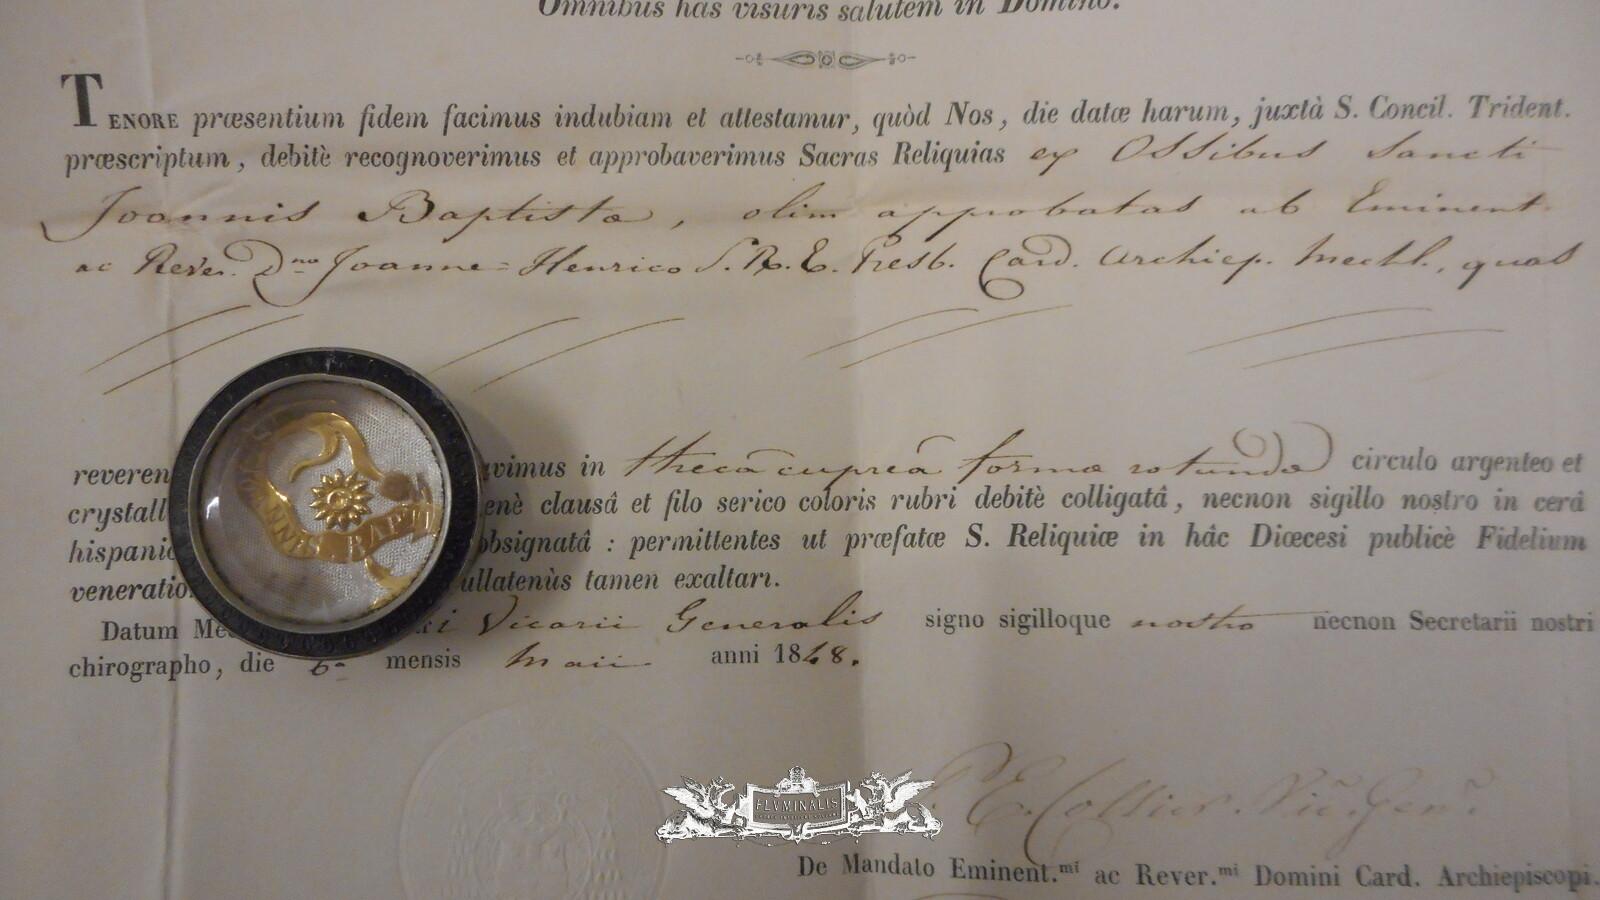 Omnibus has visuris salutem in Domino.
TENORE præsentium fidem facimus indubiam et attestamur, quòd Nos, die datæ harum, juxtà S. Concil. Trident.
præscriptum, debitè recognoverimus et approbaverimus Sacras Reliquias ex Ossibus Sancti
Joannis Baptistæ, olim approbatas ab Eminent.
ac Rever. Dno Joanne=Henrico S.R.E. Presb. Card. Archiep. Mechl., quas
reveren vimus in thecâ cupreâ formæ rotundæ circulo argenteo et
crystall enè clausâ et filo serico coloris rubri debitè colligatâ, necnon sigillo nostro in cerâ
hispanic obsignatâ : permittentes ut præfatæ S. Reliquiæ in hâc Diœcesi publicè Fidelium
veneratio ullatenùs tamen exaltari.
Datum Me i Vicarii Generalis signo sigilloque nostro necnon Secretarii nostri
chirographo, die 6a mensis Maii anni 1848.
S. JOANNIS BAPT.
P. E. Collier. Vic. Gen.
FLVMINALIS
De Mandato Eminent.mi ac Rever.mi Domini Card. Archiepiscopi.